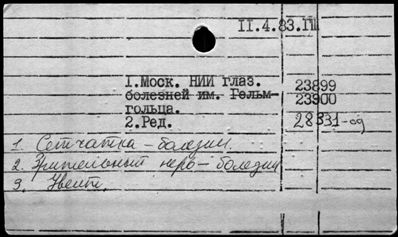 II.4.83.III
I.Моск. НИИ глаз. 23899
болезней им. Гельм- 23900
гольца.
2.Ред. 28331-од
1. Сетчатка - болезни
2. Зрительный нерв - болезни
3. Увеит.